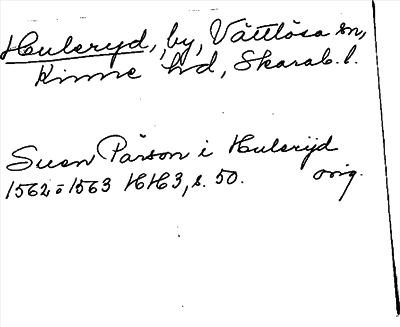 Hulsryd, by, Vättlösa sn,
Kinne hd, Skarab. l.
Suen Pårson i Hulsrijd
1562 o 1563 HH3, s. 50. orig.